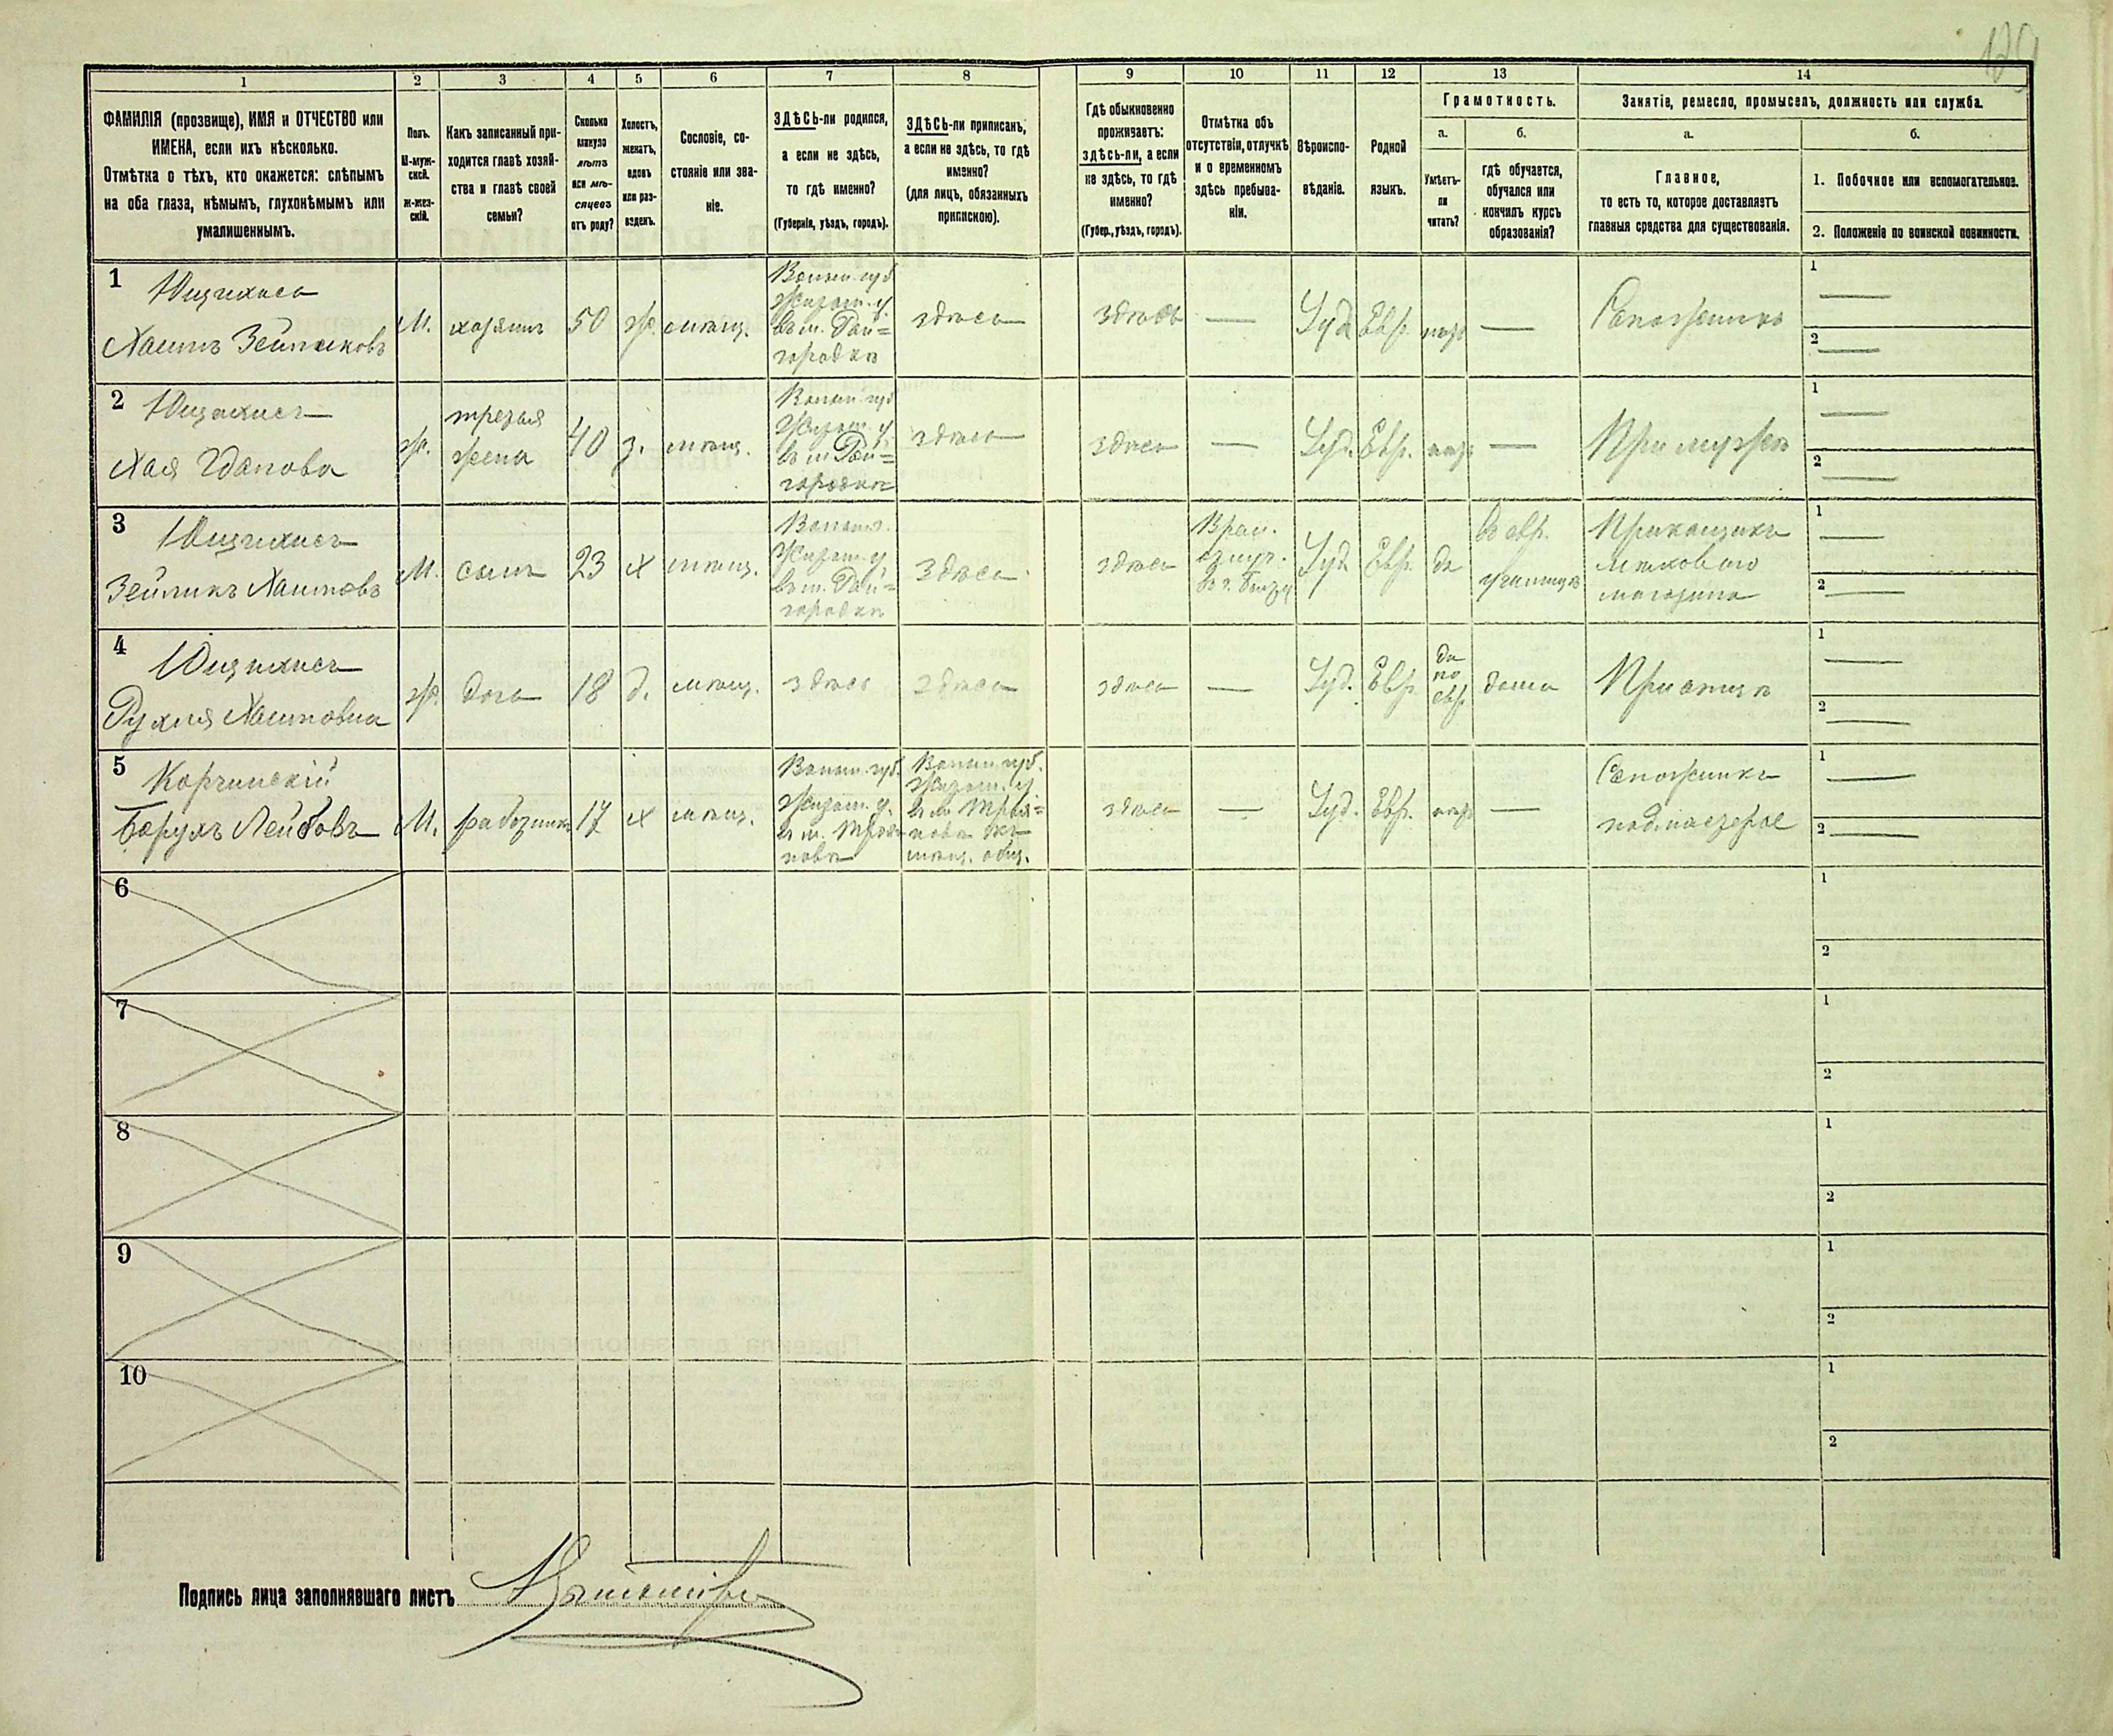 1 2 3 4 5 6 7 8 9 10 11 12 13 14
ФАМИЛІЯ (прозвище), ИМЯ и ОТЧЕСТВО или
ИМЕНА, если ихъ нѣсколько.
Отмѣтка о тѣхъ, кто окажется: слѣпымъ
на оба глаза, нѣмымъ, глухонѣмымъ или
умалишеннымъ.
Полъ.
М-муж-
ской.
Ж-жен-
скій.
Какъ записанный при-
ходится главѣ хозяй-
ства и главѣ своей
семьи?
Сколько
минуло
лѣтъ
или мѣ-
сяцевъ
отъ роду?
Холостъ,
женатъ,
вдовъ
или раз-
веденъ.
Сословіе, со-
стояніе или зва-
ніе.
ЗДѢСЬ-ли родился,
а если не здѣсь,
то гдѣ именно?
(Губернія, уѣздъ, городъ).
ЗДѢСЬ-ли приписанъ,
а если не здѣсь, то гдѣ
именно?
(для лицъ, обязанныхъ
припискою).
Гдѣ обыкновенно
проживаетъ:
здѣсь-ли, а если
не здѣсь, то гдѣ
именно?
(Губер., уѣздъ, городъ).
Отмѣтка объ
отсутствіи, отлучкѣ
и о временномъ
здѣсь пребыва-
ніи.
Вѣроиспо-
вѣданіе.
Родной
языкъ.
Грамотность.
а.
Умѣетъ-
ли
читать?
б.
гдѣ обучается,
обучался или
кончилъ курсъ
образованія?
Занятіе, ремесло, промыселъ, должность или служба.
а.
Главное,
то есть то, которое доставляетъ
главныя средства для существованія.
б.
1. Побочное или вспомогательное.
2. Положеніе по воинской повинности.
1
Хаимъ
М.
хозяинъ
50
ж.
мѣщ.
Волын. губ
Житом. у.
въ м. Рай=
городкѣ
здѣсь
здѣсь
—
Іуд
Евр.
—
Сапожникъ
1 —
2 —
2
Хая
ж.
третья
жена
40
з.
мѣщ.
Волын. губ
Житом. у.
въ м Рай=
городкѣ
здѣсь
здѣсь
—
Іуд.
Евр.
—
При мужѣ
1 —
2 —
3
Зейликъ Хаимовъ
М.
сынъ
23
х
мѣщ.
Житом. у
въ м. Рай=
городкѣ
здѣсь
здѣсь
Іуд
Евр.
да
въ евр.
училищѣ
Прикащикъ
магазина
1 —
2 —
4
Рухля Хаимовна
ж.
дочь
18
д.
мѣщ.
здѣсь
здѣсь
здѣсь
—
Іуд.
Евр.
да
по
евр
дома
При отцѣ
1 —
2 —
5
Корчинскій
Борухъ Лейбовъ
М.
работникъ
17
х
мѣщ.
Волын. губ.
Житом. у.
въ м. Троя
новѣ
Волын. губ.
Житом. у
въ м Троя=
новѣ къ
мѣщ. общ.
здѣсь
—
Іуд.
Евр.
—
Сапожникъ
подмастерье
1 —
2 —
6
1
2
7
1
2
8
1
2
9
1
2
10
1
2
Подпись лица заполнявшаго листъ